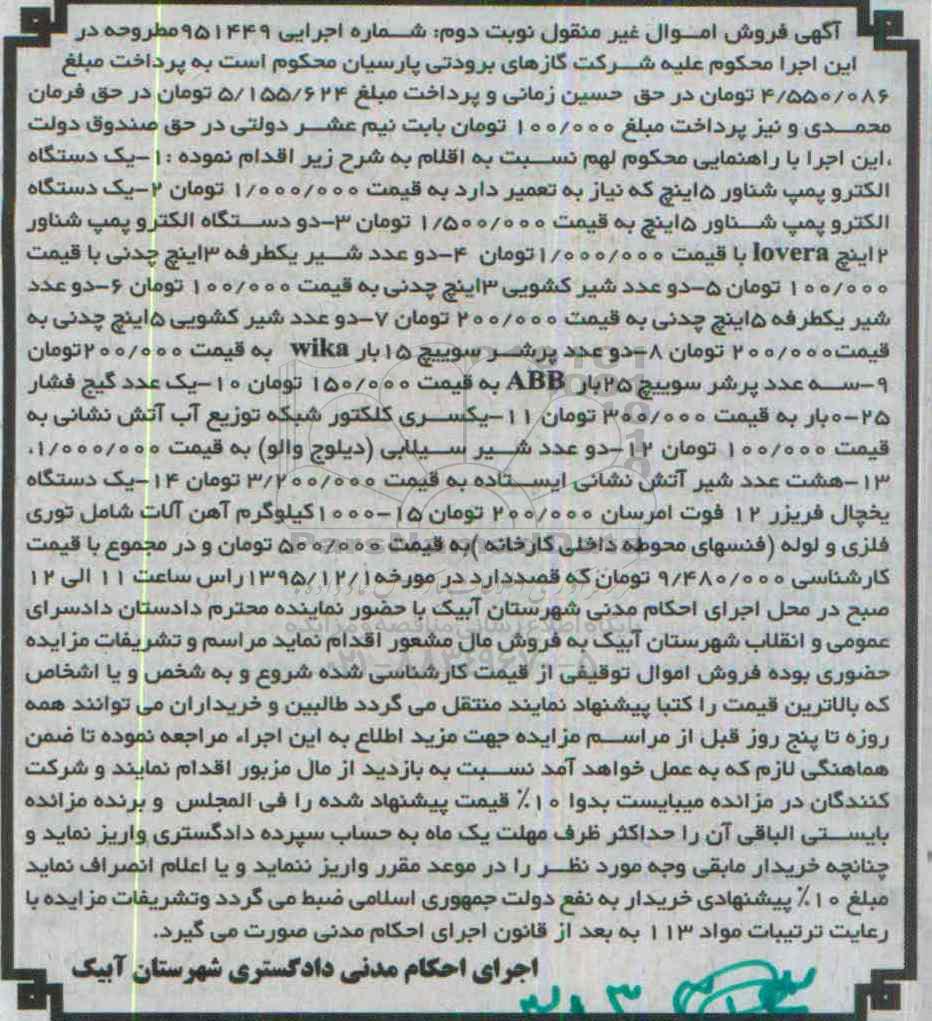 آگهی فروش اموال غیر منقول نوبت دوم: شماره اجرایی ۹۵۱۴۴۹مطروحه در
این اجرا محکوم علیه شرکت گازهای برودتی پارسیان محکوم است به پرداخت مبلغ
۴/۵۵۰/۰۸۶ تومان در حق حسین زمانی و پرداخت مبلغ ۵/۱۵۵/۶۲۴ تومان در حق فرمان
محمدی و نیز پرداخت مبلغ ۱۰۰/۰۰۰ تومان بابت نیم عشر دولتی در حق صندوق دولت
،این اجرا با راهنمایی محکوم لهم نسبت به اقلام به شرح زیر اقدام نموده :۱-یک دستگاه
الکترو پمپ شناور ۵اینچ که نیاز به تعمیر دارد به قیمت ۱/۰۰۰/۰۰۰ تومان ۲-یک دستگاه
الکترو پمپ شناور ۵اینچ به قیمت ۱/۵۰۰/۰۰۰ تومان ۳-دو دستگاه الکترو پمپ شناور
۲اینچ lovera با قیمت ۱/۰۰۰/۰۰۰تومان ۴-دو عدد شیر یکطرفه ۳اینچ چدنی با قیمت
۱۰۰/۰۰۰ تومان ۵-دو عدد شیر کشویی ۳اینچ چدنی به قیمت ۱۰۰/۰۰۰ تومان ۶-دو عدد
شیر یکطرفه ۵اینچ چدنی به قیمت ۲۰۰/۰۰۰ تومان ۷-دو عدد شیر کشویی ۵اینچ چدنی به
قیمت۲۰۰/۰۰۰ تومان ۸-دو عدد پرشر سوییچ ۱۵بار wika به قیمت ۲۰۰/۰۰۰تومان
۹-سه عدد پرشر سوییچ ۲۵بار ABB به قیمت ۱۵۰/۰۰۰ تومان ۱۰-یک عدد گیج فشار
۲۵-۰بار به قیمت ۳۰۰/۰۰۰ تومان ۱۱-یکسری کلکتور شبکه توزیع آب آتش نشانی به
قیمت ۱۰۰/۰۰۰ تومان ۱۲-دو عدد شیر سیلابی (دیلوج والو) به قیمت ۱/۰۰۰/۰۰۰،
۱۳-هشت عدد شیر آتش نشانی ایستاده به قیمت ۳/۲۰۰/۰۰۰ تومان ۱۴-یک دستگاه
یخچال فریزر ۱۲ فوت امرسان ۲۰۰/۰۰۰ تومان ۱۵-۱۰۰۰کیلوگرم آهن آلات شامل توری
فلزی و لوله (فنسهای محوطه داخلی کارخانه )به قیمت ۵۰۰/۰۰۰ تومان و در مجموع با قیمت
کارشناسی ۹/۴۸۰/۰۰۰ تومان که قصددارد در مورخه۱۳۹۵/۱۲/۱راس ساعت ۱۱ الی ۱۲
صبح در محل اجرای احکام مدنی شهرستان آبیک با حضور نماینده محترم دادستان دادسرای
عمومی و انقلاب شهرستان آبیک به فروش مال مشعور اقدام نماید مراسم و تشریفات مزایده
حضوری بوده فروش اموال توقیفی از قیمت کارشناسی شده شروع و به شخص و یا اشخاص
که بالاترین قیمت را کتبا پیشنهاد نمایند منتقل می گردد طالبین و خریداران می توانند همه
روزه تا پنج روز قبل از مراسم مزایده جهت مزید اطلاع به این اجراء مراجعه نموده تا ضمن
هماهنگی لازم که به عمل خواهد آمد نسبت به بازدید از مال مزبور اقدام نمایند و شرکت
کنندگان در مزائده میبایست بدوا ۱۰٪ قیمت پیشنهاد شده را فی المجلس و برنده مزائده
بایستی الباقی آن را حداکثر ظرف مهلت یک ماه به حساب سپرده دادگستری واریز نماید و
چنانچه خریدار مابقی وجه مورد نظر را در موعد مقرر واریز ننماید و یا اعلام انصراف نماید
مبلغ ۱۰٪ پیشنهادی خریدار به نفع دولت جمهوری اسلامی ضبط می گردد وتشریفات مزایده با
رعایت ترتیبات مواد ۱۱۳ به بعد از قانون اجرای احکام مدنی صورت می گیرد.
اجرای احکام مدنی دادگستری شهرستان آبیک